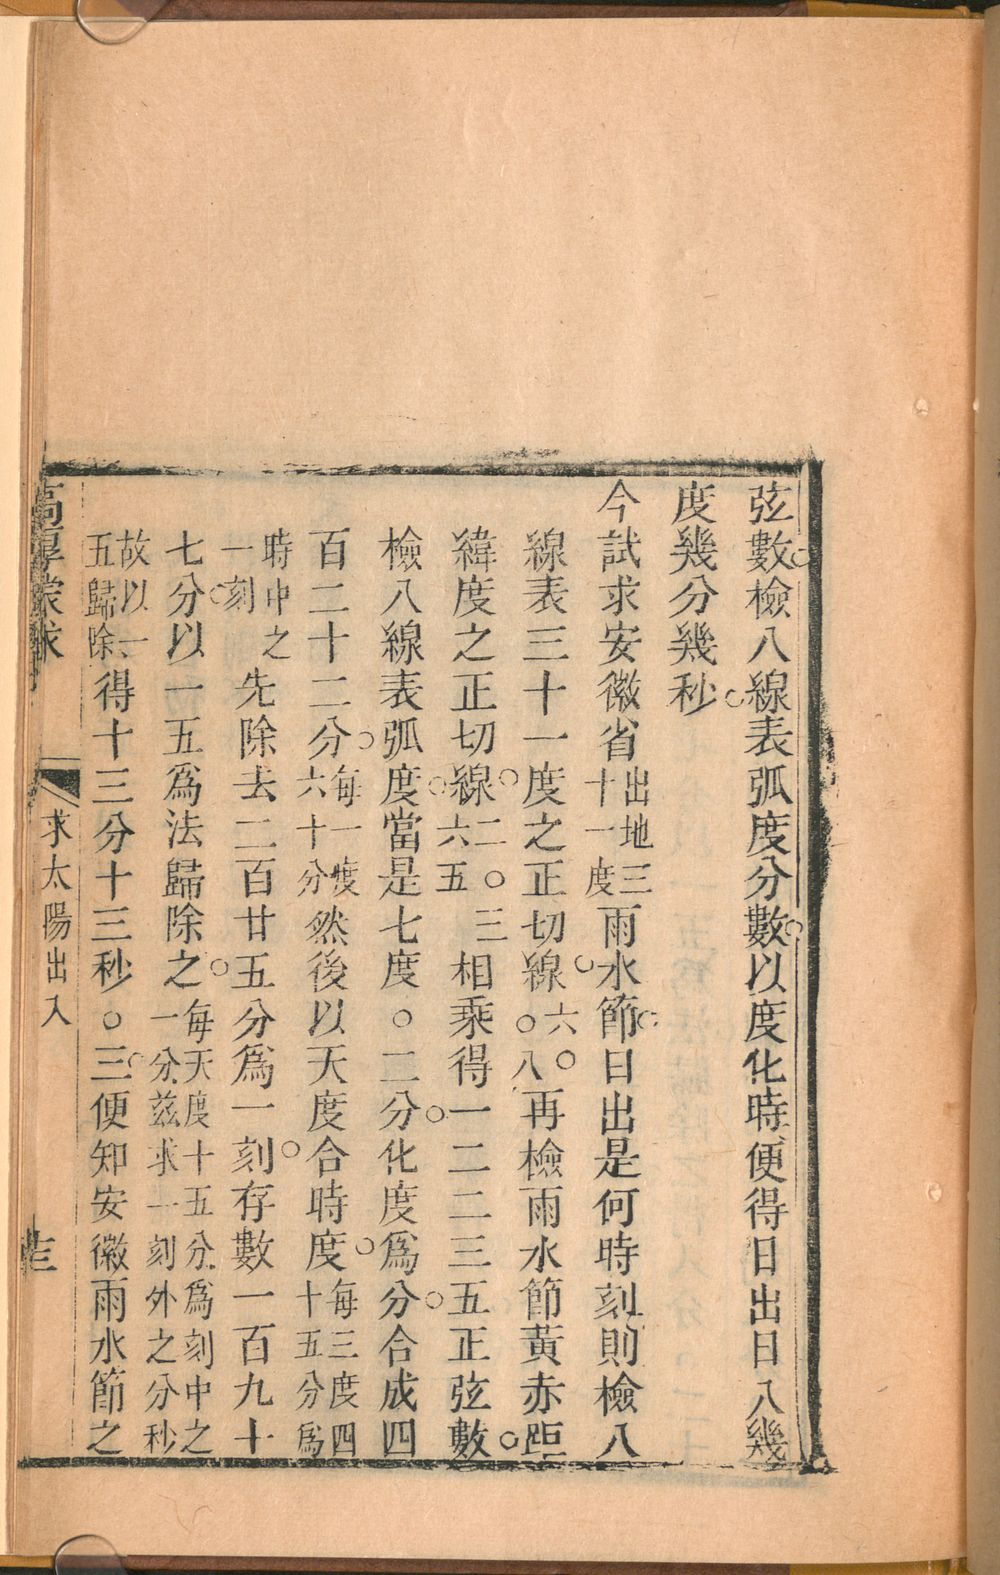 弦數檢八線表弧度分數以度化時便得日出日入幾
度幾分幾秒
今試求安徽省出地三十一度雨水節日出是何時刻則檢八
線表三十一度之正切線六〇〇八再檢雨水節黃赤距
緯度之正切線二〇三六五相乘得一二二三五正弦數
檢八線表弧度當是七度〇二分化度爲分合成四
百二十二分每一度六十分然後以天度合時度每三度四十五分爲
時中之一刻先除去二百廿五分爲一刻存數一百九十
七分以一五爲法歸除之每天度十五分爲刻中之一分茲求一刻外之分秒
故以一五歸除得十三分十三秒〇三便知安徽雨水節之
高厚蒙求
求太陽出入